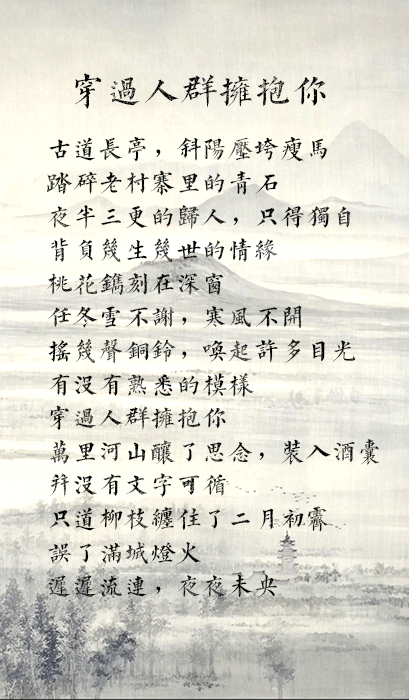 穿過人群擁抱你
古道長亭，斜陽壓垮瘦馬
踏碎老村寨里的青石
夜半三更的歸人，只得獨自
背負幾生幾世的情緣
桃花鐫刻在深窗
任冬雪不謝，寒風不開
搖幾聲銅鈴，喚起許多目光
有沒有熟悉的模樣
穿過人群擁抱你
萬里河山釀了思念，裝入酒囊
并沒有文字可循
只道柳枝纏住了二月初霽
誤了滿城燈火
遲遲流連，夜夜未央